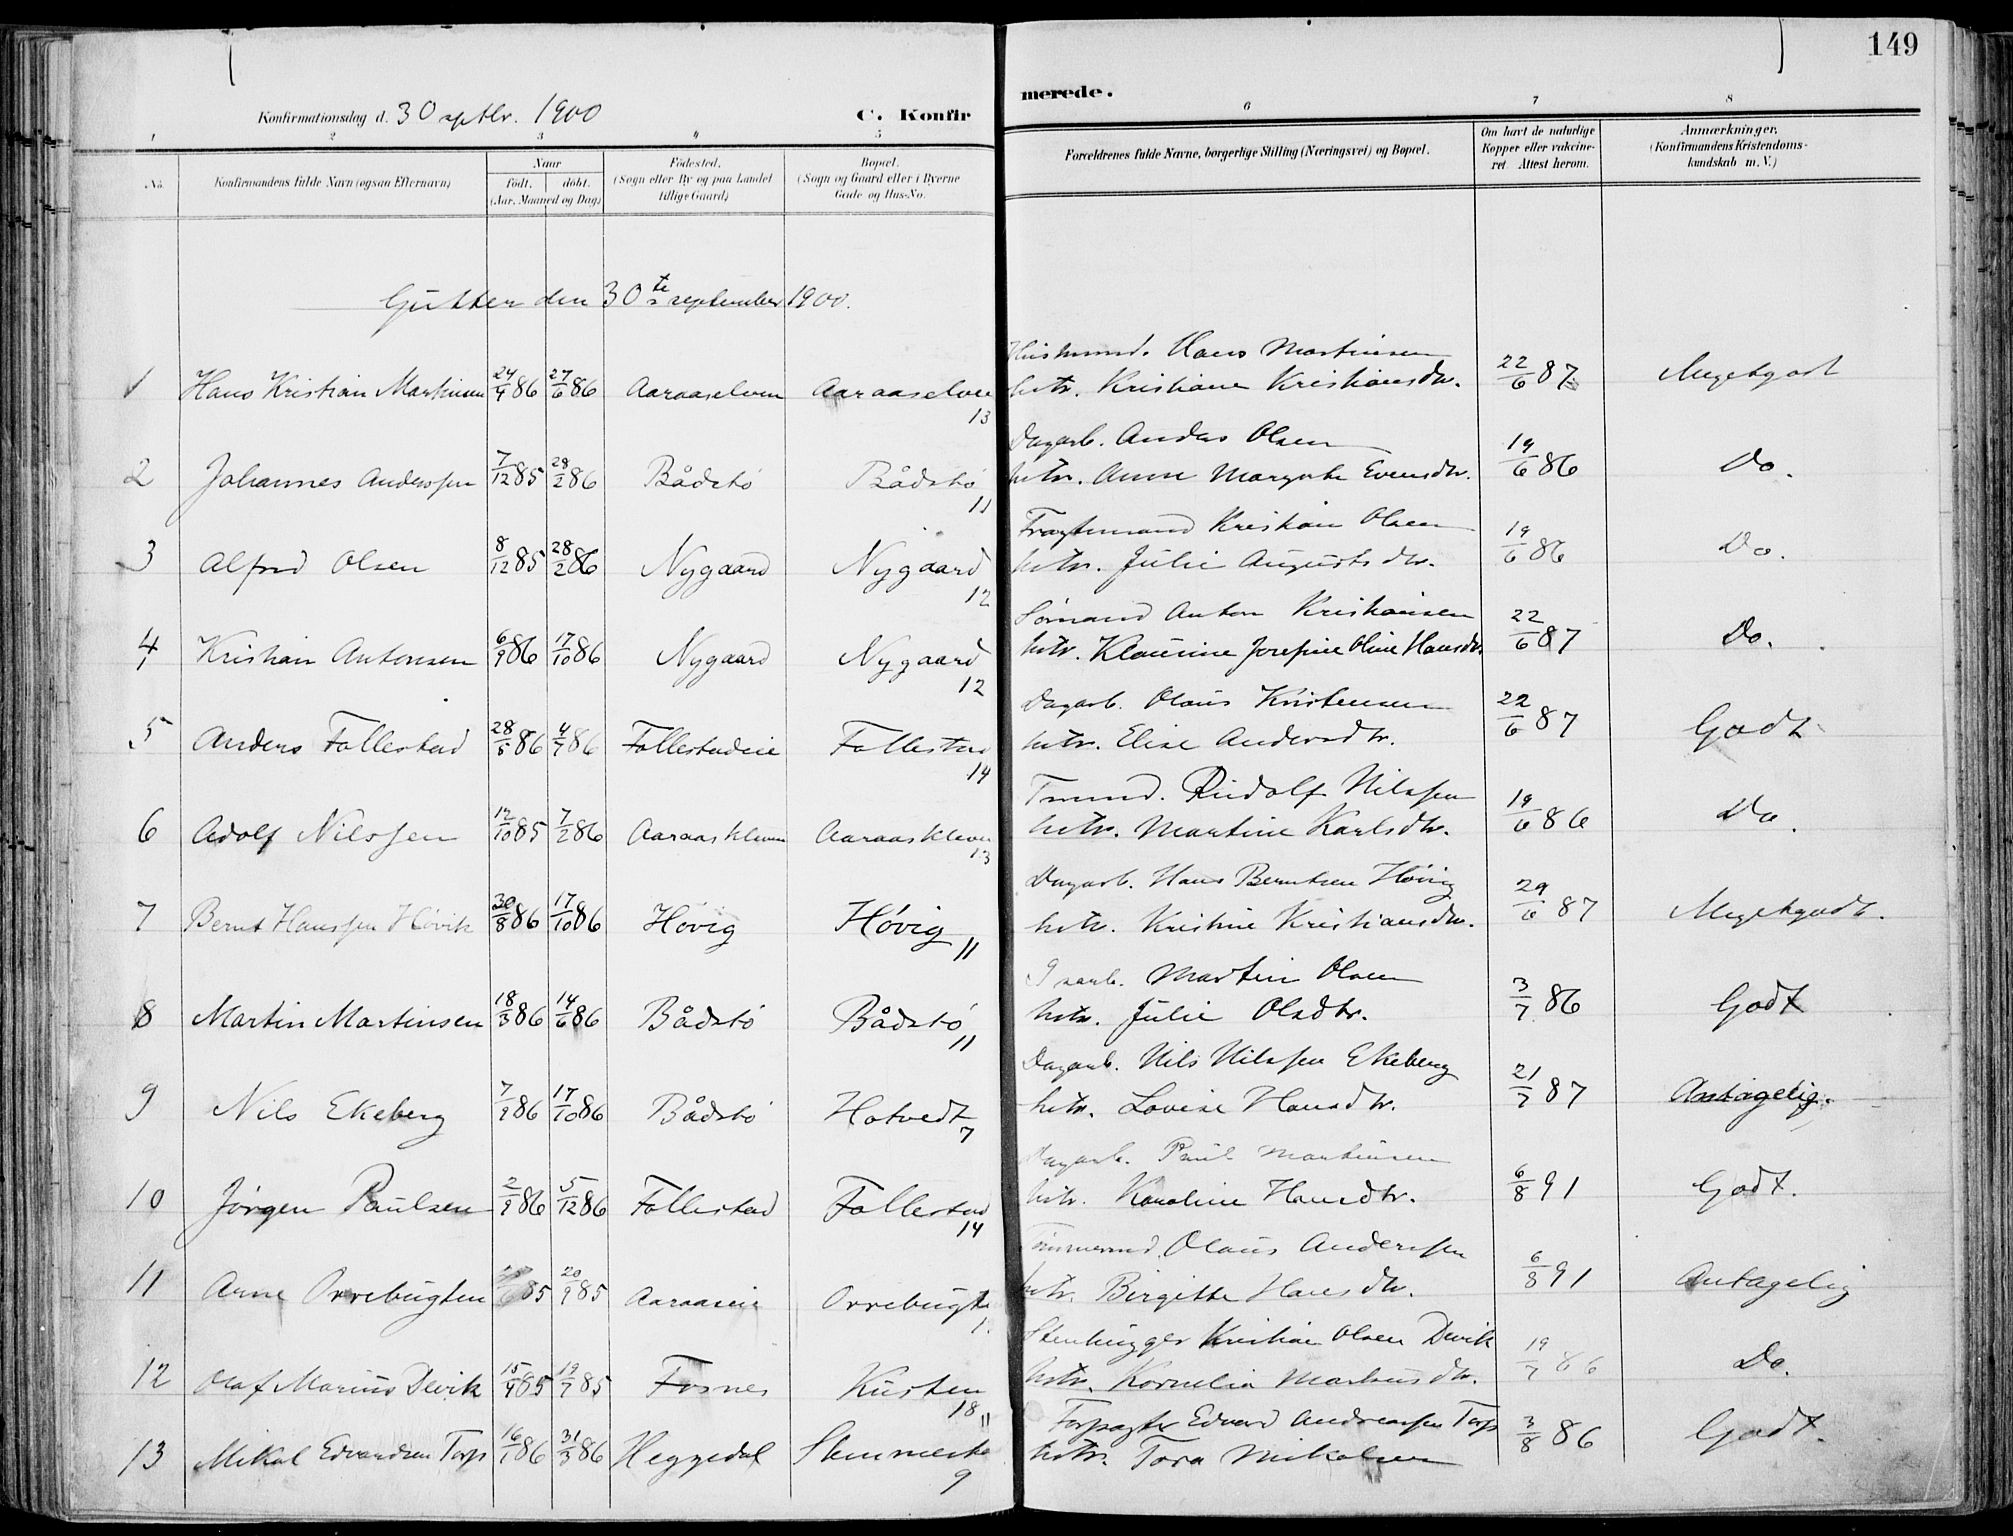 149
Konfirmationsdag d. 30 septbr. 1900
C. Konfirmerede.
1 2 3 4 5 6 7 8
No. Konfirmandens fulde Navn (ogsaa Efternavn) Naar født. døbt. (Aar, Maaned og Dag) Fødested. (Sogn eller By og paa Landet tillige Gaard) Bopæl. (Sogn og Gaard eller i Byerne Gade og Hus-No. Forældrenes fulde Navne, borgerlige Stilling (Næringsvei) og Bopæl. Om havt de naturlige Kopper eller vakcineret. Attest herom. Anmærkninger. (Konfirmandens Kristendomskundskab m. V.)
Gutter den 30te september 1900.
Husmand. Hans Martinsen
1 Hans Kristian Martinsen 24/4 86 27/6 86 Aaraaselven Aaraaselven 13 hstr. Kristiane Kristiansdtr. 22/6 87 Megetgodt
Dagarb. Anders Olsen
2 Johannes Anderssen 7/12 85 28/2 86 Bådstø Bådstø 11 hstr. Anne Margrete Evensdtr. 19/6 86 Do.
Fragtemand Kristian Olsen
3 Alfred Olsen 8/12 85 28/2 86 Nygaard Nygaard 12 hstr. Julie Augustsdtr. 19/6 86 Do.
Sømand Anton Kristiansen
4 Kristian Antonsen 6/9 86 17/10 86 Nygaard Nygaard 12 hstr. Klaurine Josefine Oline Hansdtr. 22/6 87 Do.
Dagarb. Olaus Kristensen
5 Anders Follestad 28/5 86 4/7 86 Follestadeie Follestad 14 hstr. Elise Andersdtr. 22/6 87 Godt
Rudolf Nilssen
6 Adolf Nilssen 12/10 85 7/2 86 Aaraaskleven Aaraaskleven 13 hstr. Martine Karlsdtr. 19/6 86 Do.
Dagarb. Hans Berntsen Høvig
7 Bernt Hanssen Høvik 30/8 86 17/10 86 Høvig Høvig 11 hstr. Kristine Kristiansdtr. 29/6 87 Megetgodt.
Martin Olsen
8 Martin Martinsen 18/3 86 14/6 86 Bådstø Bådstø 11 hstr. Julie Olsdtr. 3/7 86 Godt
Dagarb. Nils Nilssen Ekeberg
9 Nils Ekeberg 7/9 86 17/10 86 Bådstø Hotvedt 7 hstr. Lovise Hansdtr. 21/7 87 Antagelig.
Dagarb. Paul Martinsen
10 Jørgen Paulsen 2/9 86 5/12 86 Follestad Follestad 14 hstr. Karoline Hansdtr. 6/8 91 Godt.
Tømmermd. Olaus Anderssen
11 Arne Orrebugten 85 20/9 85 Aaraaseie Orrebugten hstr. Birgitte Hansdtr. 6/8 91 Antagelig
Stenhugger Kristian Olsen Devik
12 Olaf Marius Devik 15/4 85 19/7 85 Fosnes Kusten 18 11 hstr. Kornelia Markusdtr. 19/7 86 Do.
Forpagter Edvard Andreassen Torp
13 Mikal Edvardsen Torp 16/1 86 31/3 86 Heggedal Stemmestø 9 hstr. Tora Mikalsen 3/8 86 Godt.